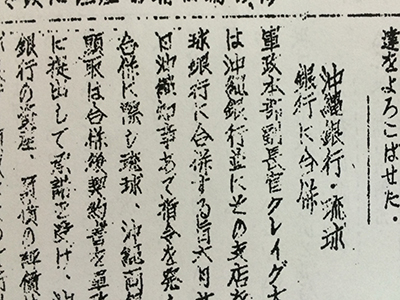 達をよろこばせた。
沖縄銀行・琉球
銀行に合併
軍政本部副長官クレイグ大
は沖縄銀行並にその支店を
球銀行に合併する旨六月廿
日沖縄知事あて指令を発し
合併に際し琉球、沖縄両銀
頭取は合併後契約書を軍政
に提出して承認を受け、沖
銀行の資産、負債の評価は